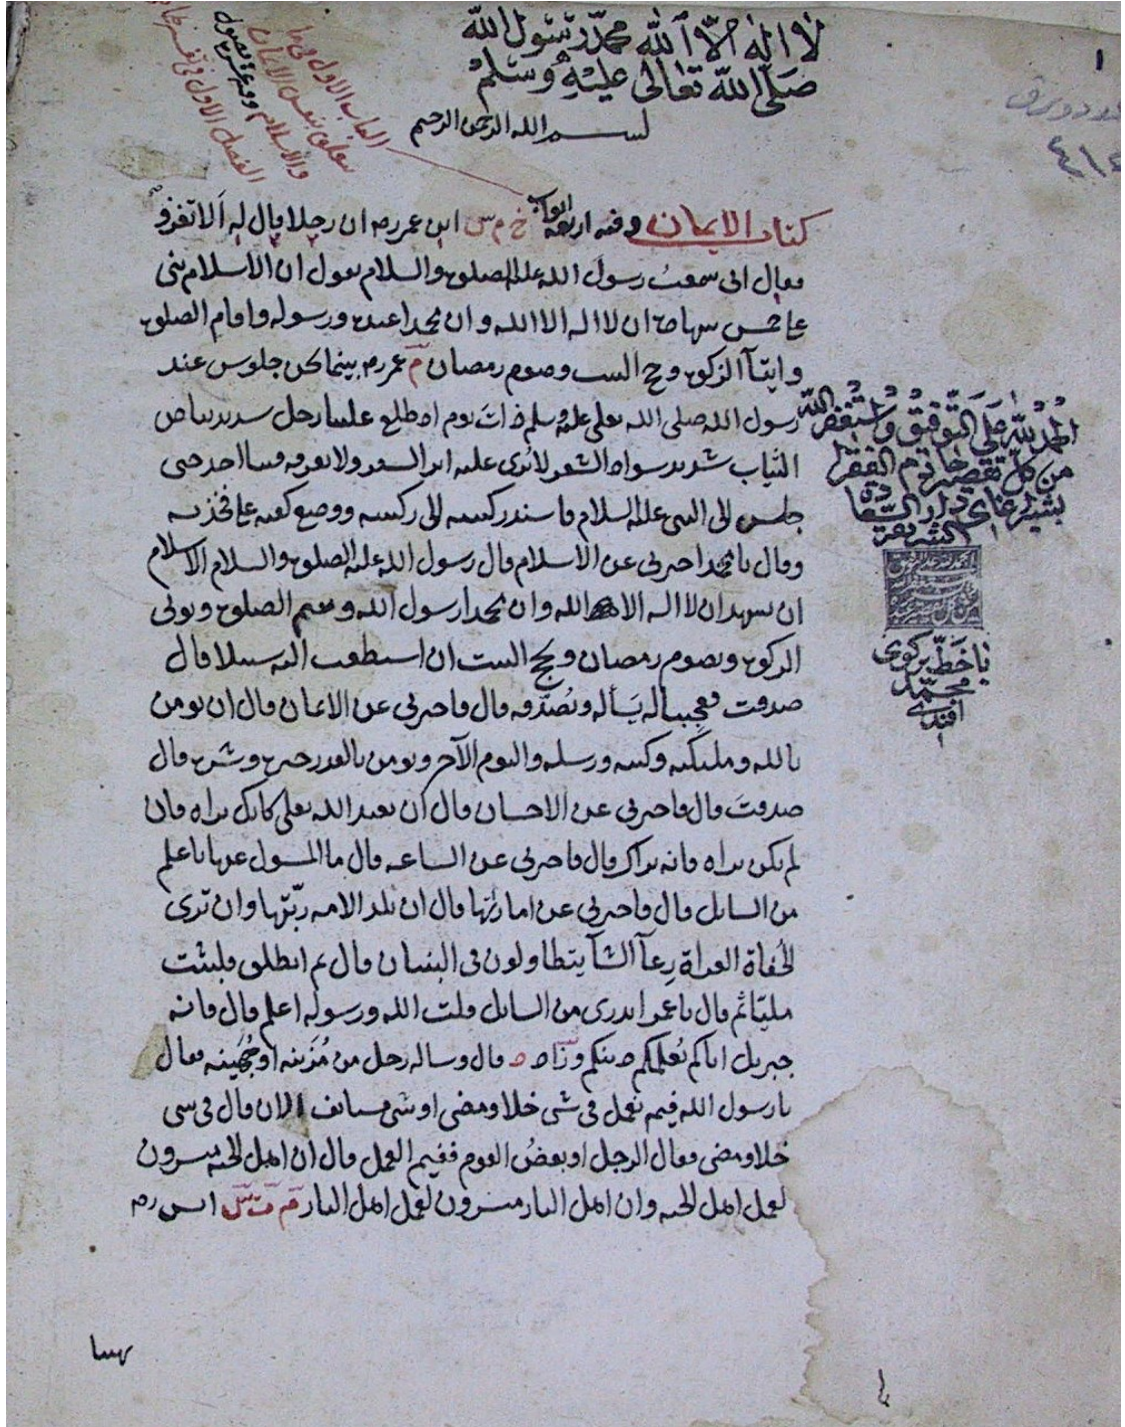 لا اله الا الله محمد رسول الله
صلى الله تعالى عليه وسلم
بسم الله الرحمن الرحيم
الباب الاول في ما
يتعلق بنفس الايمان
والاسلام وفيه فصول
الفصل الاول في
كتاب الايمان وفيه اربعة ابواب خ م س ابن عمر رض ان رجلا قال له ألا تغزو
فقال انى سمعت رسول الله عليه الصلوة والسلام يقول ان الاسلام بنى
على خمس شهادة ان لا اله الا الله وان محمدا عبده ورسوله واقام الصلوة
وايتآ الزكوة وحج البيت وصوم رمضان م عمر رض بينما نحن جلوس عند
رسول الله صلى الله تعالى عليه وسلم ذات يوم اذ طلع علينا رجل شديد بياض
الثياب شديد سواد الشعر لا يُرى عليه اثر السفر ولا يعرفه منا احد حتى
جلس الى النبى عليه السلام فاسند ركبتيه الى ركبتيه ووضع كفيه على فخذيه
وقال يا محمد اخبرنى عن الاسلام قال رسول الله عليه الصلوة والسلام الاسلام
ان تشهد ان لا اله الا الله وان محمدا رسول الله وتقيم الصلوة وتؤتى
الزكوة وتصوم رمضان وتحج البيت ان استطعت اليه سبيلا قال
صدقت فعجبنا له يسأله ويُصدّقه قال فاخبرنى عن الايمان قال ان تؤمن
بالله وملئكته وكتبه ورسله واليوم الآخر وتؤمن بالقدر خيره وشره قال
صدقت قال فاخبرنى عن الاحسان قال ان تعبد الله تعالى كانك تراه فان
لم تكن تراه فانه يراك قال فاخبرنى عن الساعة قال ما المسؤل عنها باعلم
من السائل قال فاخبرنى عن اماراتها قال ان تلد الامة ربّتها وان ترى
الحُفاة العراة رِعآ الشآ يتطاولون فى البنيان قال ثم انطلق فلبثت
مليّا ثم قال يا عمر اتدرى من السائل قلت الله ورسوله اعلم قال فانه
جبريل اتاكم يُعلمكم دينكم وزاد د قال وساله رجل من مُزَينه او جُهَينه فقال
يا رسول الله فيم نعمل فى شى خلا ومضى او شى مستانف الان قال فى شى
خلا ومضى فقال الرجل او بعضُ القوم ففيم العمل قال ان اهل الجنة ميسرون
لعمل اهل الجنة وان اهل النار ميسرون لعمل اهل النار انس رض
بينما
الحمد لله على التوفيق واستغفر الله
من كل تقصير خادم الفقرا
بشير اغاى دار السعادة
الشريفة
با خط بركوى
محمد
افندى
١
عدد ورق